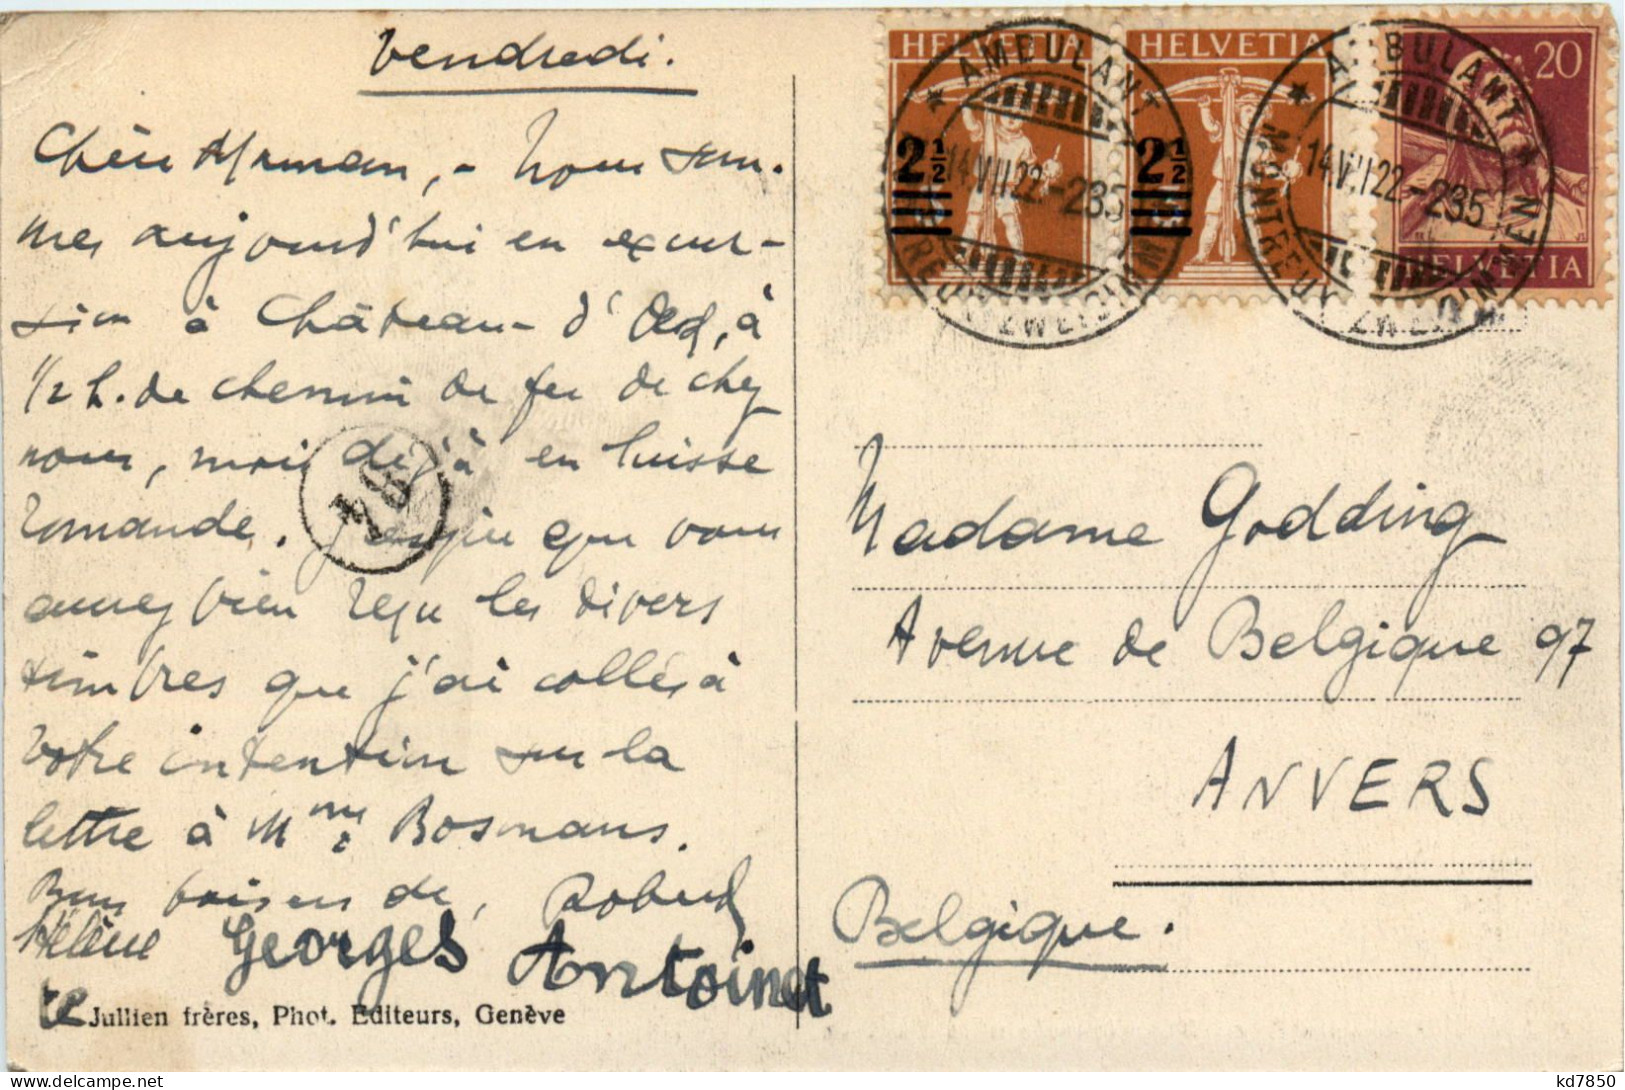 Vendredi.
Chère Maman, - Nous som-
mes aujourd'hui en excur-
sion à Château-d'Oex, à
1/2 h. de chemin de fer de chez
nous, mais déjà en Suisse
romande. J'espère que vous
aurez bien reçu les divers
timbres que j'ai collés à
votre intention sur la
lettre à Mme Bosmans.
Bons baisers de, Robert
Hélène Georges Antoinet
te
Jullien frères, Phot. Editeurs, Genève
HELVETIA HELVETIA 20
2½ 2½
HELVETIA
AMBULANT
14.VII.22-235
MONTREUX-ZWEISIMMEN
AMBULANT
14.VII.22-235
MONTREUX-ZWEISIMMEN
Madame Godding
Avenue de Belgique 97
ANVERS
Belgique.
kd7850